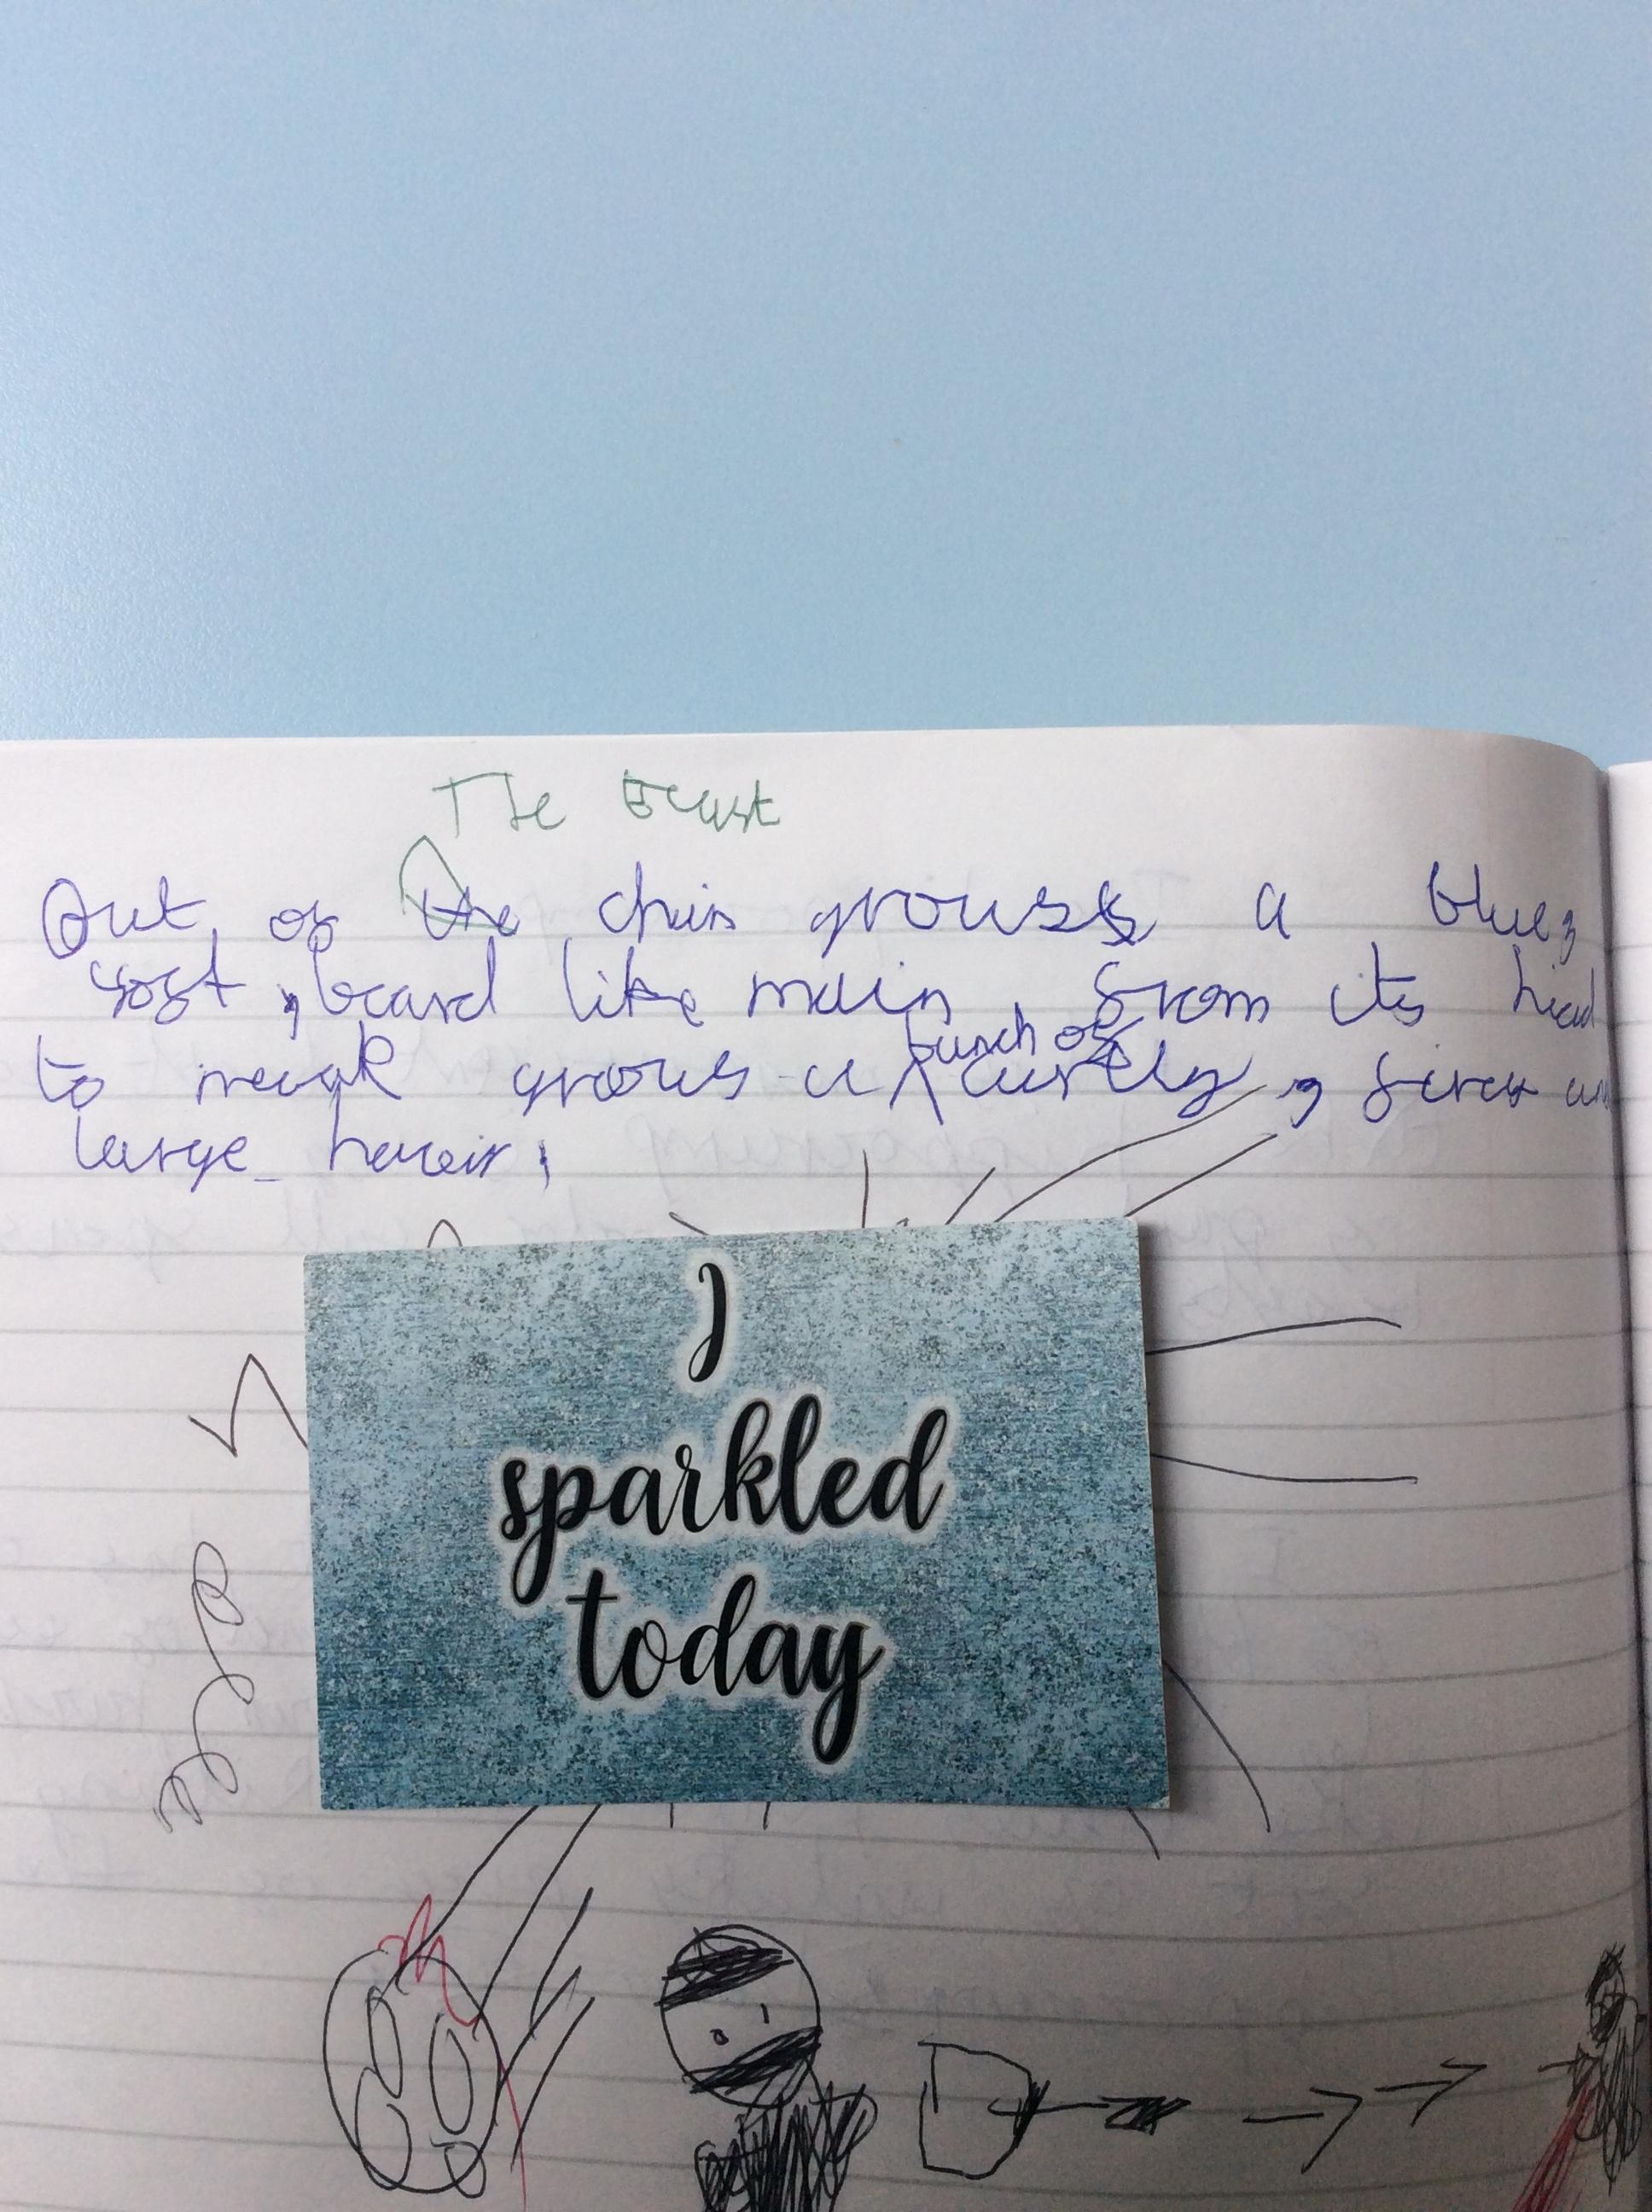 The Beast
Out of the chin grows a blue,
soft, beard like main, from its head
to neak grows a bunch of curly, firce an
large hair,
I
sparkled
today